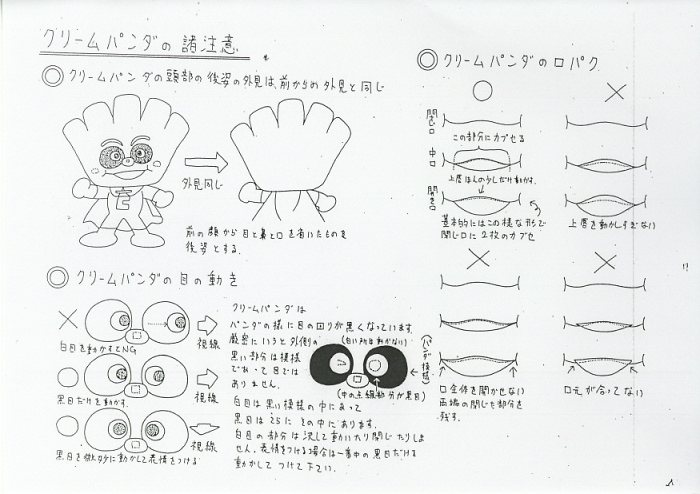 クリームパンダの諸注意
◎クリームパンダの頭部の後姿の外見は、前からの外見と同じ
外見同じ
前の顔から目と鼻と口を省いたものを
後姿とする。
◎クリームパンダの目の動き
白目を動かすとNG
視線
黒目だけを動かす。
視線
黒目を微妙に動かして表情をつける
視線
クリームパンダは
パンダの様に目の回りが黒くなっています。
厳密にいうと外側の
黒い部分は模様
であって目では
ありません。
(白い所は動かない)
(パンダ模様)
(中の点線部分が黒目)
白目は黒い模様の中にあって
黒目はさらにその中にあります。
白目の部分は決して動いたり閉じたりしま
せん。表情をつける場合は一番中の黒目だけを
動かしてつけて下さい。
◎クリームパンダの口パク
○
×
閉じ口
この部分にカブせる
中口
上唇ほんの少しだけ動かす。
開き口
基本的にはこの様な形で
閉じ口に2枚のカブセ
上唇を動かしすぎない
×
×
口全体を開かせない
両端の閉じた部分を
残す。
口元が合ってない